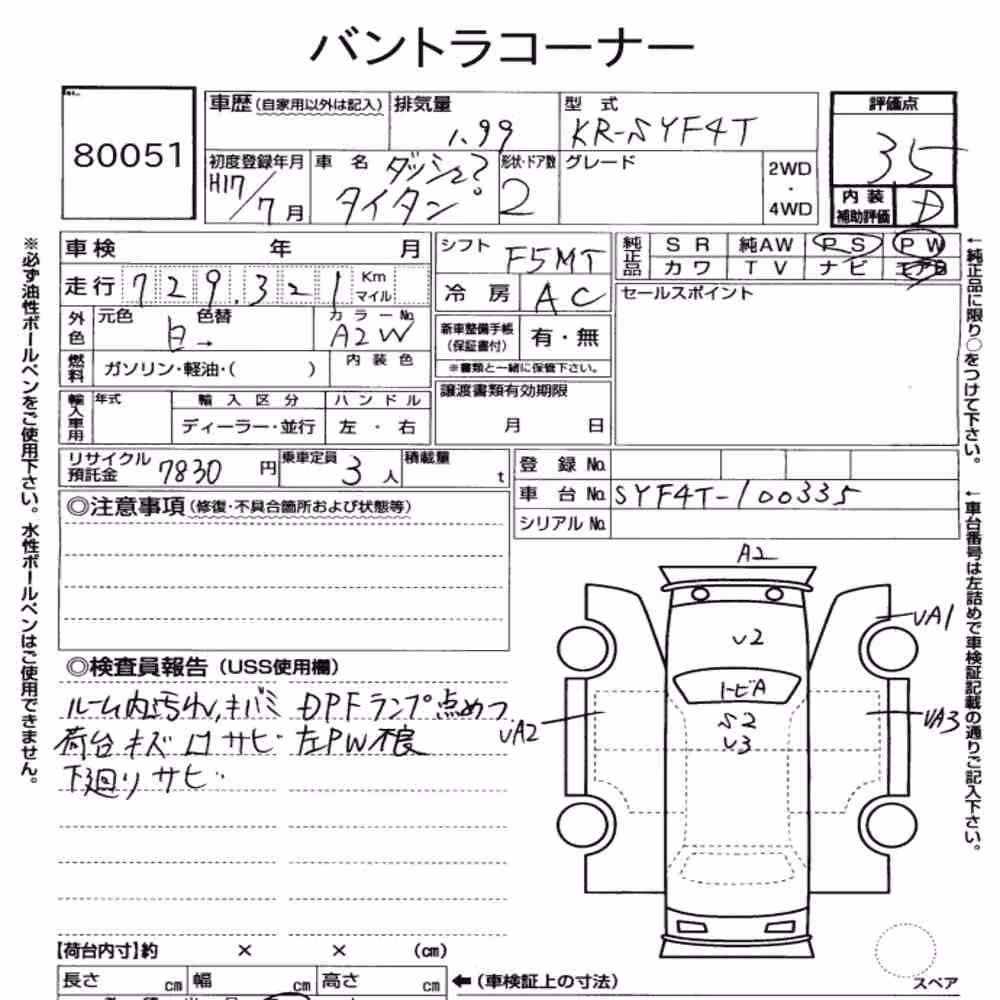 バントラコーナー
80051
車歴 (自家用以外は記入) 排気量 1.99
型式 KR-SYF4T
評価点 35
内装補助評価 D
初度登録年月 H17/7月
車名 ダッシュ? タイタン
形状・ドア数 2
グレード
2WD
・
4WD
車検 年 月
走行 729.321 Km マイル
シフト F5MT
冷房 AC
純正品 SR 純AW PS PW
カワ TV ナビ エアB
セールスポイント
外色 元色 白→ 色替 カラーNo. A2W
燃料 ガソリン・軽油・( ) 内装色
新車整備手帳 (保証書付) 有・無
※書類と一緒に保管下さい。
譲渡書類有効期限
月 日
輸入車用 年式 輸入区分 ハンドル
ディーラー・並行 左・右
リサイクル預託金 7830円 乗車定員 3人 積載量 t
登録No.
車台No. SYF4T-100335
シリアルNo.
◎注意事項 (修復・不具合箇所および状態等)
◎検査員報告 (USS使用欄)
ルーム内汚れ、キバミ DPFランプ点めつ
荷台キズ凹サビ 左PW不良
下廻りサビ
A2
U2
トビA
S2
U3
UA1
UA2
UA3
【荷台内寸】約 × × (cm)
長さ cm 幅 cm 高さ cm
←(車検証上の寸法)
スペア
※必ず油性ボールペンをご使用下さい。水性ボールペンはご使用できません。
←純正品に限り○をつけて下さい。
←車台番号は左詰めで車検証記載の通りご記入下さい。